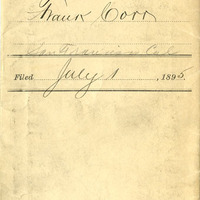 Frank Corr
San Francisco Cal
Filed July 1, 1895.